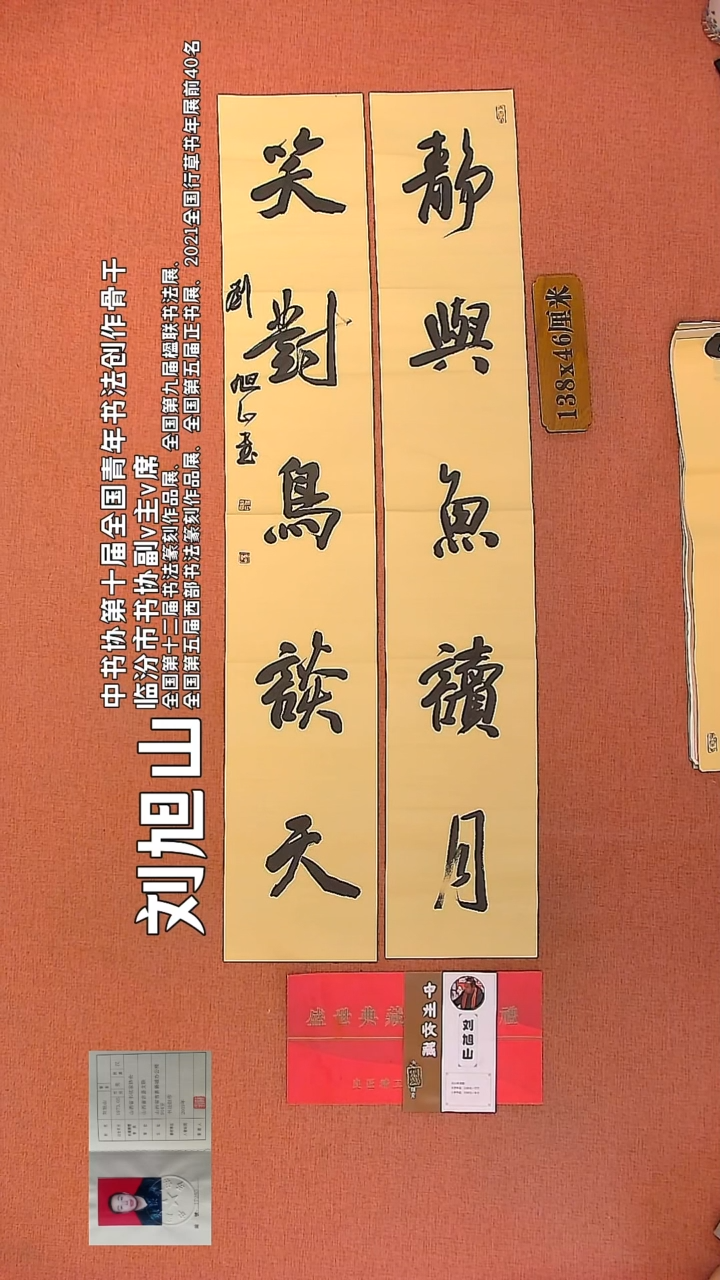 静與魚讀月
笑對鳥談天
劉旭山書
138x46厘米
刘旭山
中书协第十届全国青年书法创作骨干
临汾市书协副v主v席
全国第十二届书法篆刻作品展、全国第九届楹联书法展、
全国第五届西部书法篆刻作品展、全国第五届正书展、2021全国行草书年展前40名
中州收藏
刘旭山